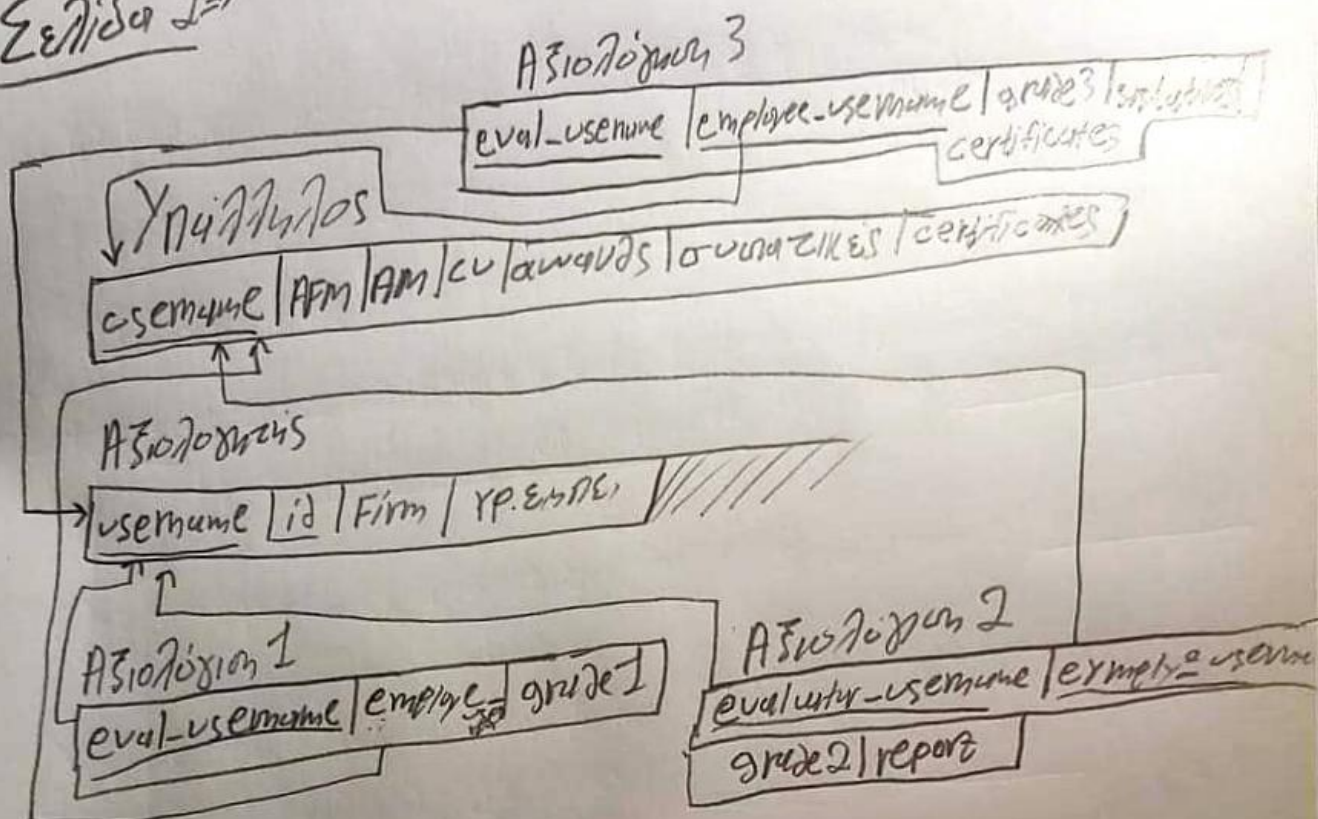 Σελίδα 1
Αξιολόγηση 3
eval_username | employee_username | grade3
certificates
Υπάλληλος
username | AFM | AM | cv | awards | συστατικές | certificates
Αξιολογητής
username | id | Firm
Αξιολόγηση 1
eval_username | grade1
Αξιολόγηση 2
evaluator_username
grade2 | report